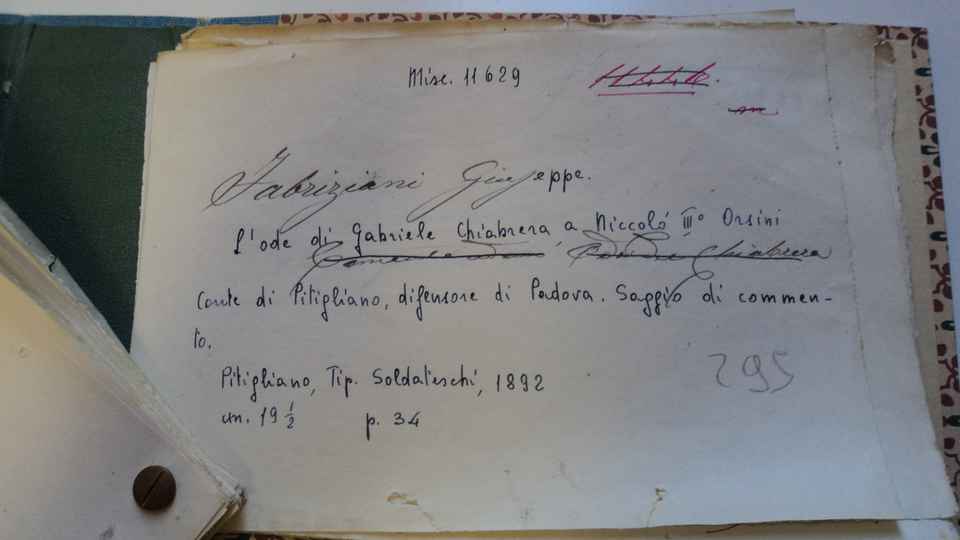 Misc. 11629
Fabriziani Giuseppe.
L'ode di Gabriele Chiabrera a Niccolò III° Orsini
Chiabrera
Conte di Pitigliano, difensore di Padova. Saggio di commen-
to.
Pitigliano, Tip. Soldateschi, 1892
cm. 19 1/2 p. 34
295